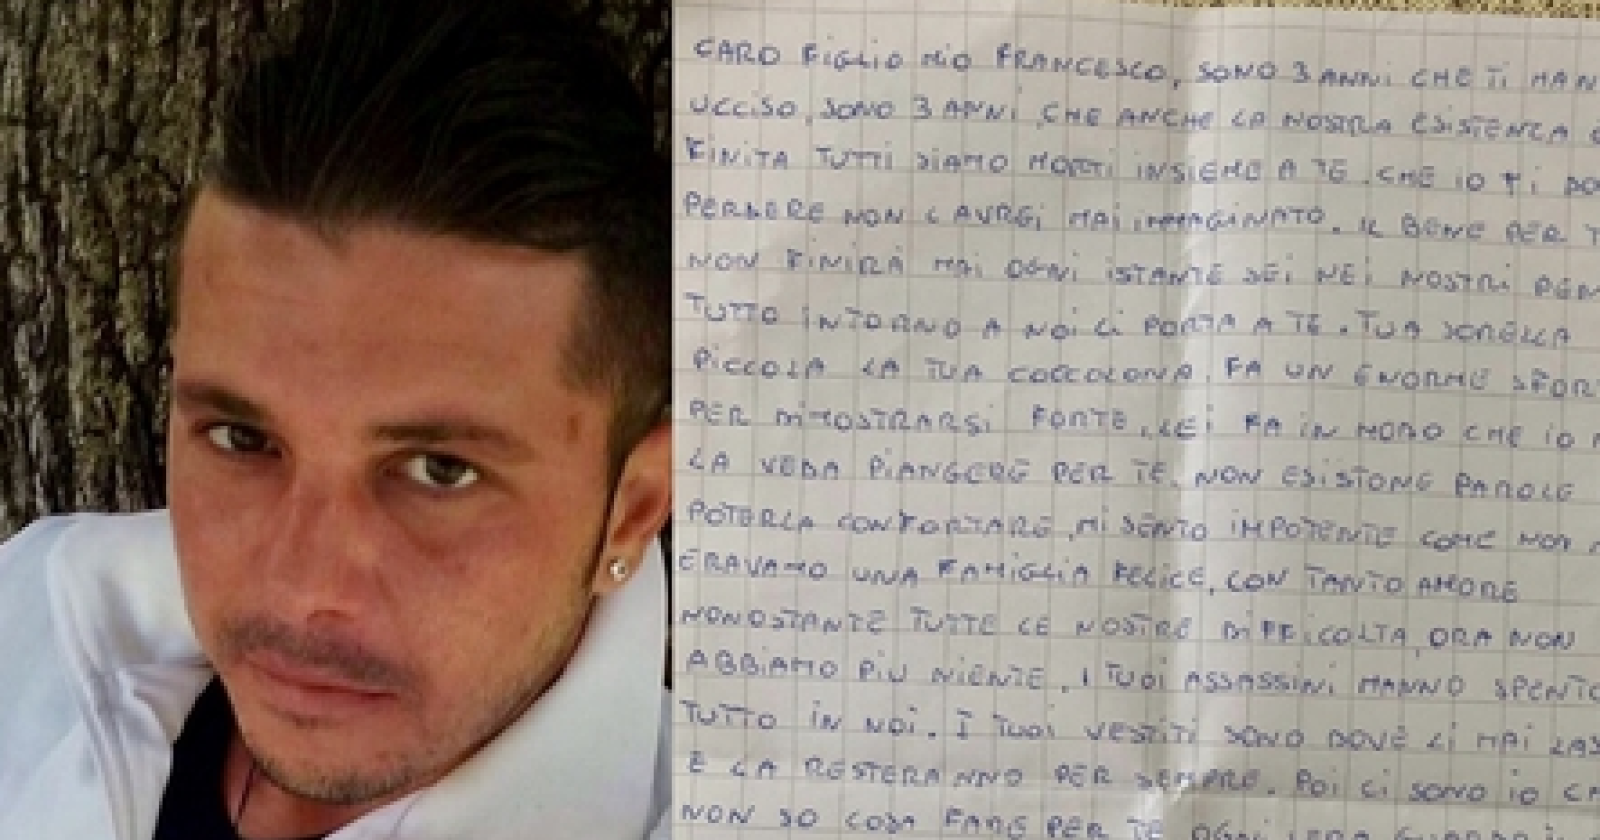 CARO FIGLIO MIO FRANCESCO, SONO 3 ANNI CHE TI HAN
UCCISO, SONO 3 ANNI CHE ANCHE LA NOSTRA ESISTENZA
FINITA TUTTI SIAMO MORTI INSIEME A TE. CHE IO TI
PERDERE NON L'AVREI MAI IMMAGINATO. IL BENE PER T
NON FINIRÀ MAI OGNI ISTANTE SEI NEI NOSTRI PEN
TUTTO INTORNO A NOI CI PORTA A TE. TUA SORELLA
PICCOLA LA TUA COCCOLONA, FA UN ENORME SFOR
PER DIMOSTRARSI FORTE, LEI FA IN MODO CHE IO N
LA VEDA PIANGERE PER TE. NON ESISTONO PAROLE
POTERLA CONFORTARE, MI SENTO IMPOTENTE COME NON
ERAVAMO UNA FAMIGLIA FELICE, CON TANTO AMORE
NONOSTANTE TUTTE LE NOSTRE DIFFICOLTA, ORA NON
ABBIAMO PIÙ NIENTE. I TUOI ASSASSINI HANNO SPENTO
TUTTO IN NOI. I TUOI VESTITI SONO DOVE LI HAI LAS
E LA RESTERANNO PER SEMPRE. POI CI SONO IO CH
NON SO COSA FARE PER TE OGNI SERA